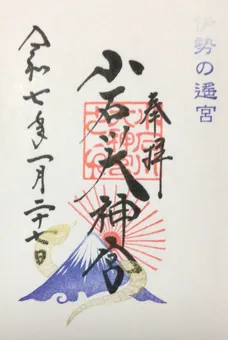 伊勢の遥宮
奉拝
小石川大神宮
令和七年一月二十七日